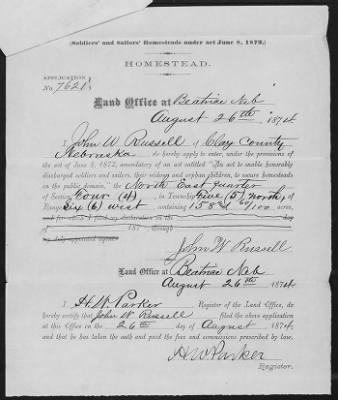 (Soldiers' and Sailors' Homesteads under act June 8, 1872.)
HOMESTEAD.
APPLICATION
No. 7621
Land Office at Beatrice Neb
August 26th, 1874
I John W Russell of Clay County
Nebraska do hereby apply to enter, under the provisions of
the act of June 8, 1872, amendatory of an act entitled "An act to enable honorably
discharged soldiers and sailors, their widows and orphan children, to secure homesteads
on the public domain," the North East quarter
of Section Four (4), in Township Five (5) north, of
Range Six (6) west, containing 158 /100 acres,
and for which I filed my declaration on the day
of 187 , through
my duly appointed agent
John W Russell
Land Office at Beatrice Neb
August 26th 1874
I H. W. Parker Register of the Land Office, do
hereby certify that John W Russell filed the above application
at this Office on the 26th day of August 1874,
and that he has taken the oath and paid the fees and commissions prescribed by law.
H W Parker
Register.